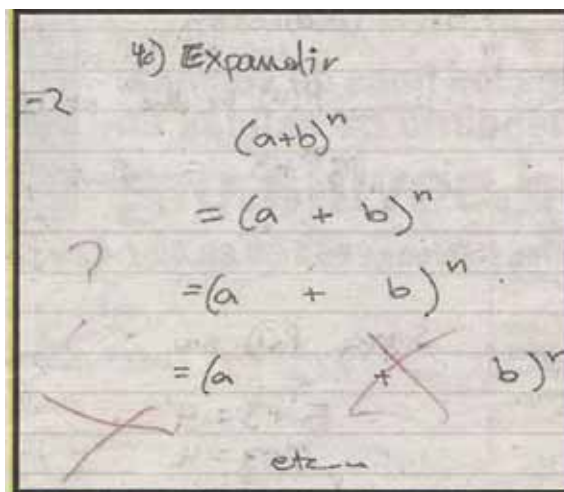 4c) Expandir
=2
(a+b)^n
= (a + b)^n
?
=(a + b)^n
= (a + b)^n
etc...